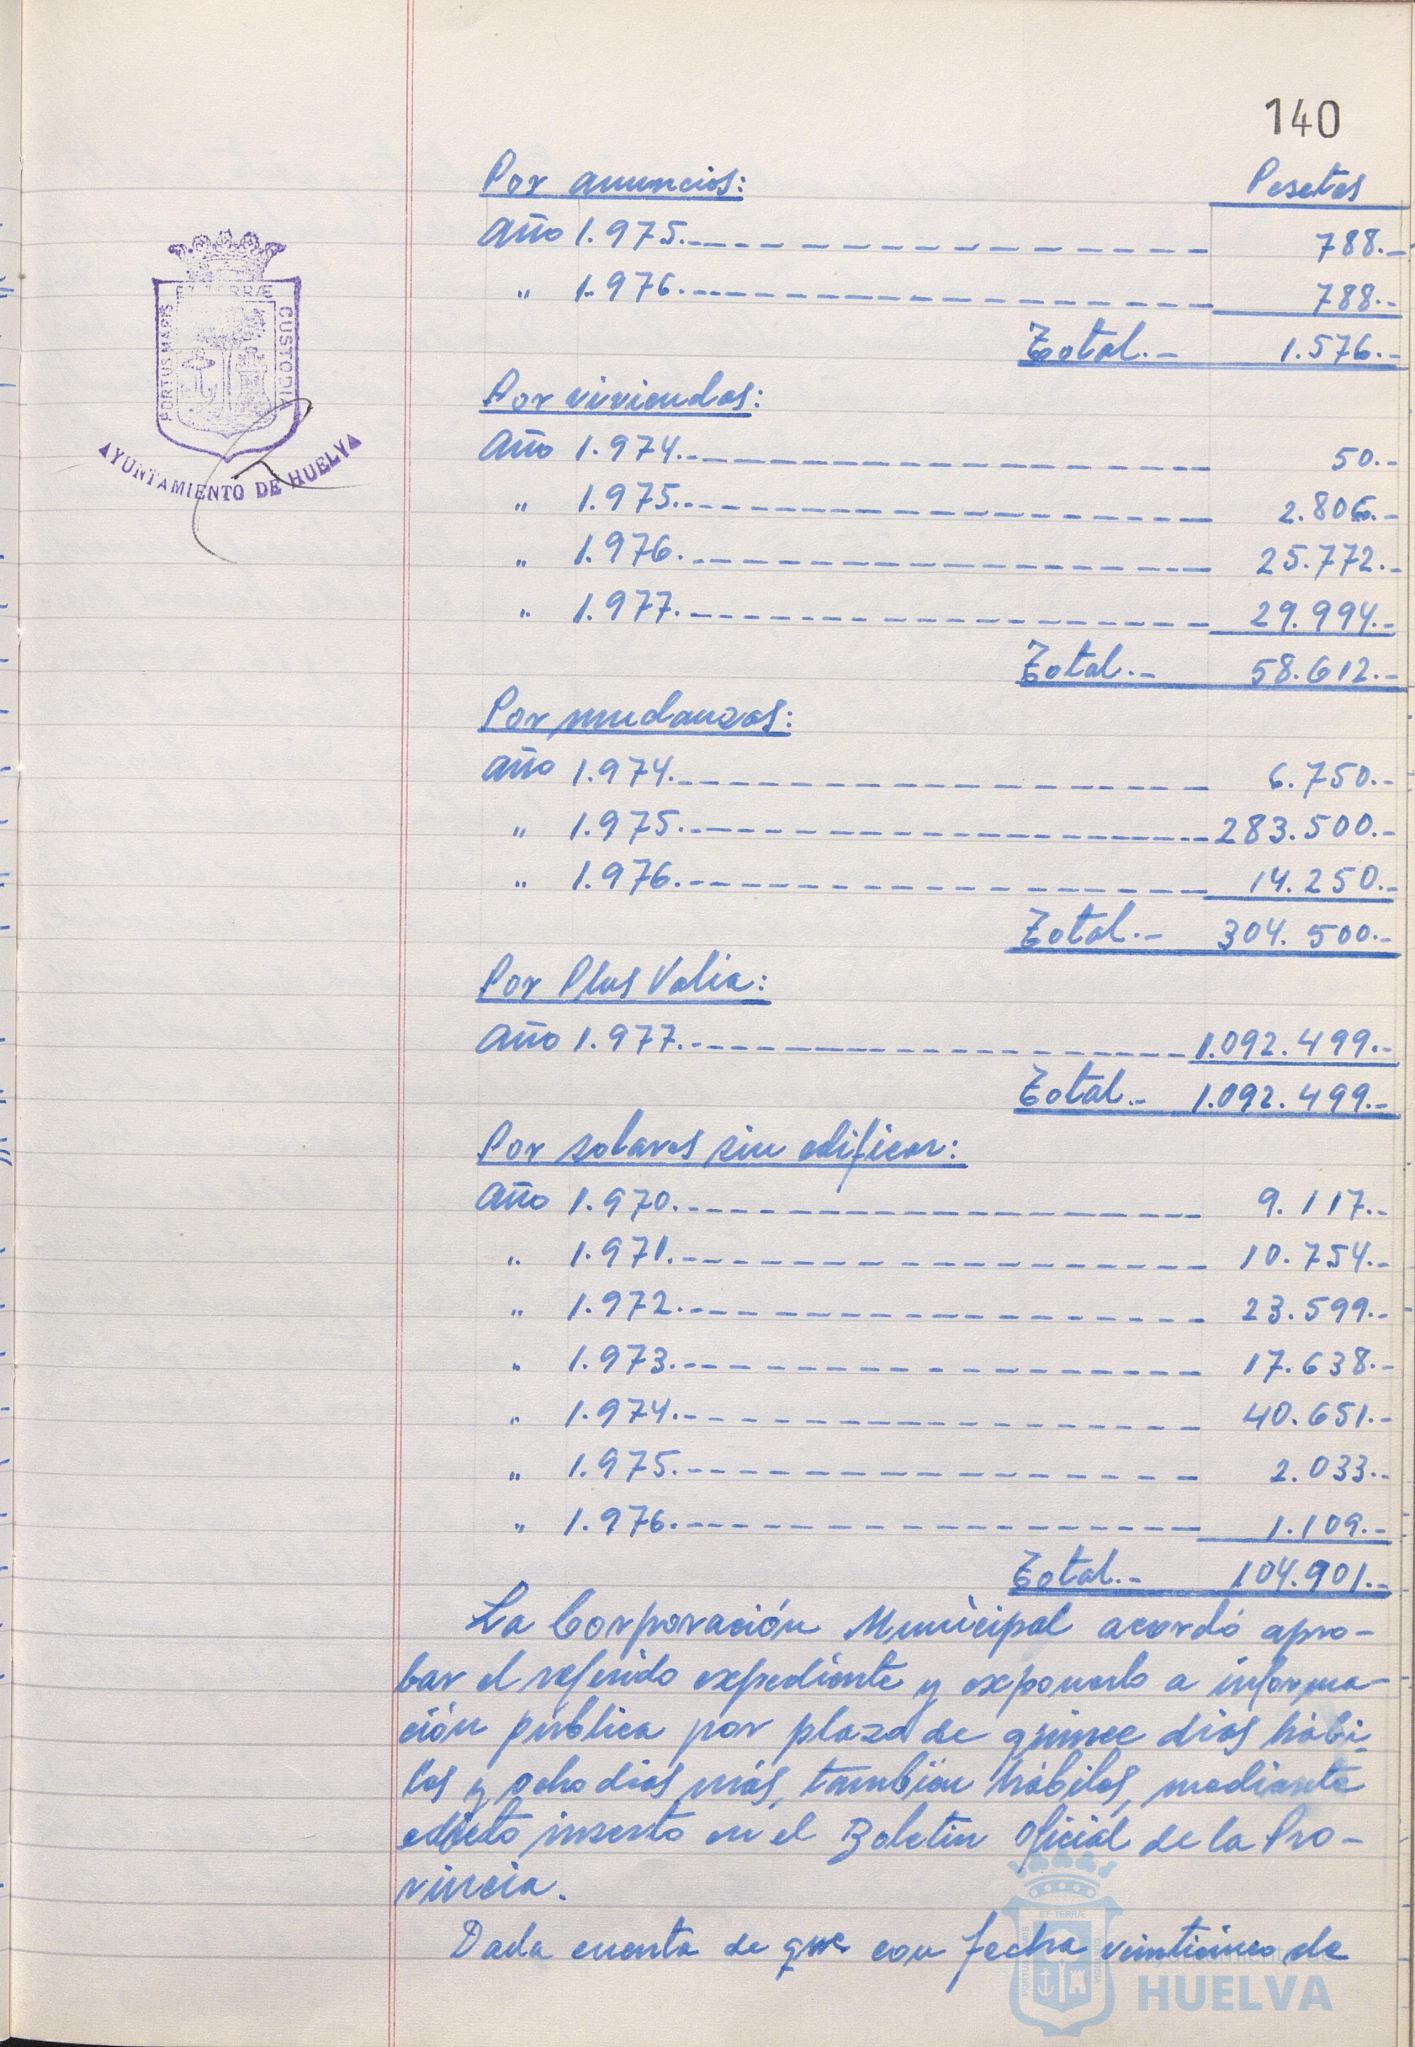 140
Por anuncios: Pesetas
Año 1.975.- 788.-
" 1.976.- 788.-
Total.- 1.576.-
Por viviendas:
Año 1.974.- 50.-
" 1.975.- 2.806.-
" 1.976.- 25.772.-
" 1.977.- 29.994.-
Total.- 58.612.-
Por mudanzas:
Año 1.974.- 6.750.-
" 1.975.- 283.500.-
" 1.976.- 14.250.-
Total.- 304.500.-
Por Plus Valia:
Año 1.977.- 1.092.499.-
Total.- 1.092.499.-
Por solares sin edificar:
Año 1.970.- 9.117.-
" 1.971.- 10.754.-
" 1.972.- 23.599.-
" 1.973.- 17.638.-
" 1.974.- 40.651.-
" 1.975.- 2.033.-
" 1.976.- 1.109.-
Total.- 104.901.-
La Corporación Municipal acordó apro-
bar el referido expediente y exponerlo a informa-
ción pública por plazo de quince dias hábi-
les y ocho dias más, también hábiles, mediante
edicto inserto en el Boletin Oficial de la Pro-
vincia.
Dada cuenta de que con fecha veinticinco de
PORTUS MARIS ET TERRÆ CUSTODIA
AYUNTAMIENTO DE HUELVA
Ayuntamiento de
HUELVA